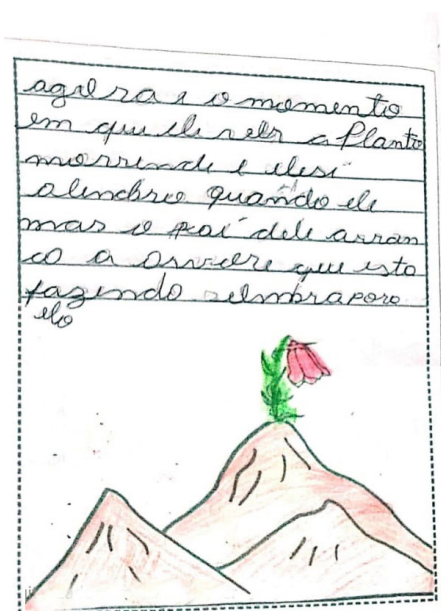 agora e o momento
em que ele ver a Planta
morrende e elesi
alembro quando ele
mas o pai dele arran
co a arvore que esta
fazendo selmbra para
elo